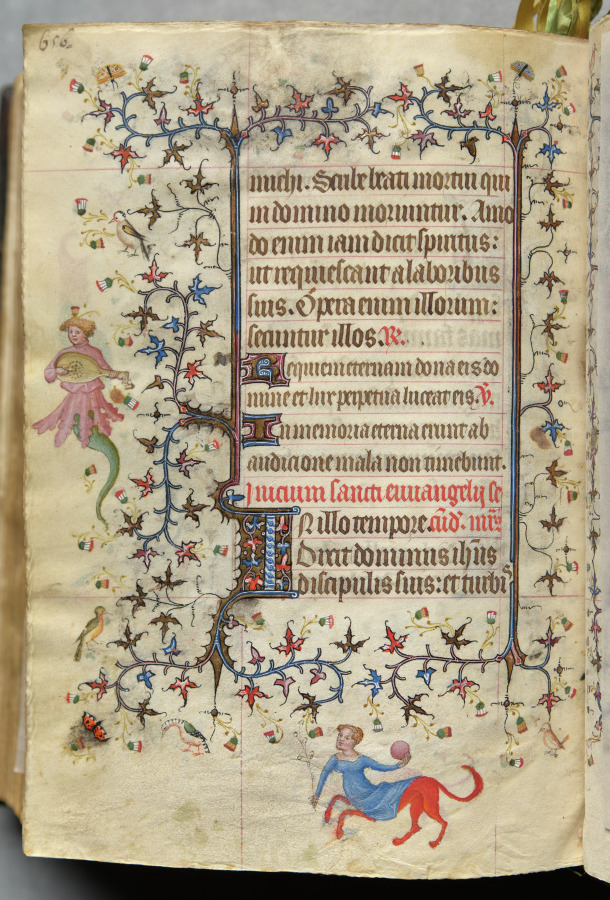 656.
michi. Scribe beati mortui qui
in domino moriuntur. Amo
do enim iam dicit spiritus:
ut requiescant a laboribus
suis. Opera enim illorum:
secuntur illos. R.
Requiem eternam dona eis do
mine et lux perpetua luceat eis. V.
In memoria eterna erunt ab
audicione mala non timebunt.
Inicium sancti euuangelij se
IN illo tempore. cūd. mrs
Dixit dominus ihūs
discipulis suis: et turbis